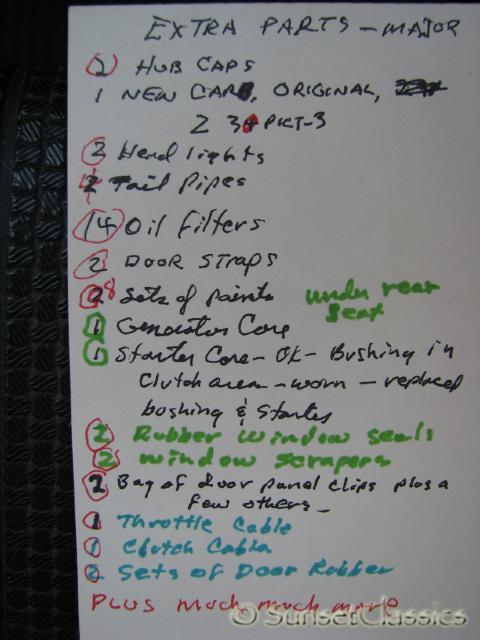 EXTRA PARTS - MAJOR
2 HUB CAPS
1 NEW CARB, ORIGINAL,
2 34 PICT-3
2 Head lights
Tail Pipes
14 Oil Filters
2 DOOR STRAPS
8 Sets of points under rear
seat
1 Generator Core
1 Starter Core - OK - Bushing in
clutch area - worn - replaced
bushing & Starter
2 Rubber window seals
2 window scrapers
2 Bag of door panel clips plus a
few others -
1 Throttle Cable
1 Clutch Cable
2 Sets of Door Rubber
PLUS Much, much more
© SunsetClassics